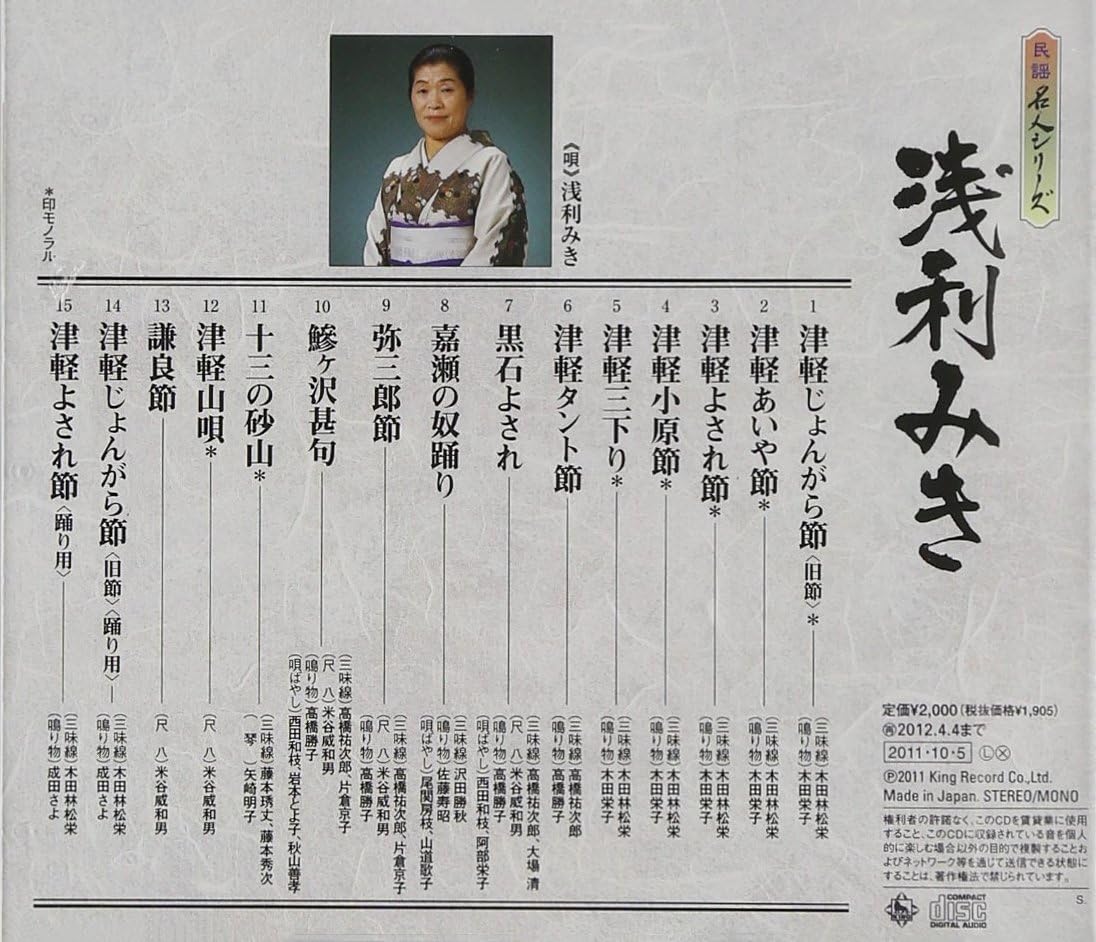 民謡名人シリーズ
浅利みき
《唄》浅利みき
1 津軽じょんがら節〈旧節〉*
(三味線)木田林松栄
(鳴り物)木田栄子
2 津軽あいや節*
(三味線)木田林松栄
(鳴り物)木田栄子
3 津軽よされ節*
(三味線)木田林松栄
(鳴り物)木田栄子
4 津軽小原節*
(三味線)木田林松栄
(鳴り物)木田栄子
5 津軽三下り*
(三味線)木田林松栄
(鳴り物)木田栄子
6 津軽タント節
(三味線)高橋祐次郎
(鳴り物)高橋勝子
7 黒石よされ
(三味線)高橋祐次郎、大場 清
(尺 八)米谷威和男
(鳴り物)高橋勝子
(唄ばやし)西田和枝、阿部栄子
8 嘉瀬の奴踊り
(三味線)沢田勝秋
(鳴り物)佐藤寿昭
(唄ばやし)尾関房枝、山道歌子
9 弥三郎節
(三味線)高橋祐次郎、片倉京子
(尺 八)米谷威和男
(鳴り物)高橋勝子
10 鰺ヶ沢甚句
(三味線)高橋祐次郎、片倉京子
(尺 八)米谷威和男
(鳴り物)高橋勝子
(唄ばやし)西田和枝、岩本とよ子、秋山善孝
11 十三の砂山*
(三味線)藤本琇丈、藤本秀次
(琴)矢崎明子
12 津軽山唄*
(尺 八)米谷威和男
13 謙良節
(尺 八)米谷威和男
14 津軽じょんがら節〈旧節〉〈踊り用〉
(三味線)木田林松栄
(鳴り物)成田さよ
15 津軽よされ節〈踊り用〉
(三味線)木田林松栄
(鳴り物)成田さよ
*印モノラル
定価¥2,000(税抜価格¥1,905)
再2012.4.4まで
2011・10・5 Ⓛ
Ⓟ2011 King Record Co.,Ltd.
Made in Japan. STEREO/MONO
権利者の許諾なく、このCDを賃貸業に使用
すること、このCDに収録されている音を個人
的に楽しむ場合以外の目的で複製することお
よびネットワーク等を通じて送信できる状態に
することは、著作権法で禁じられています。
S.
COMPACT
disc
DIGITAL AUDIO